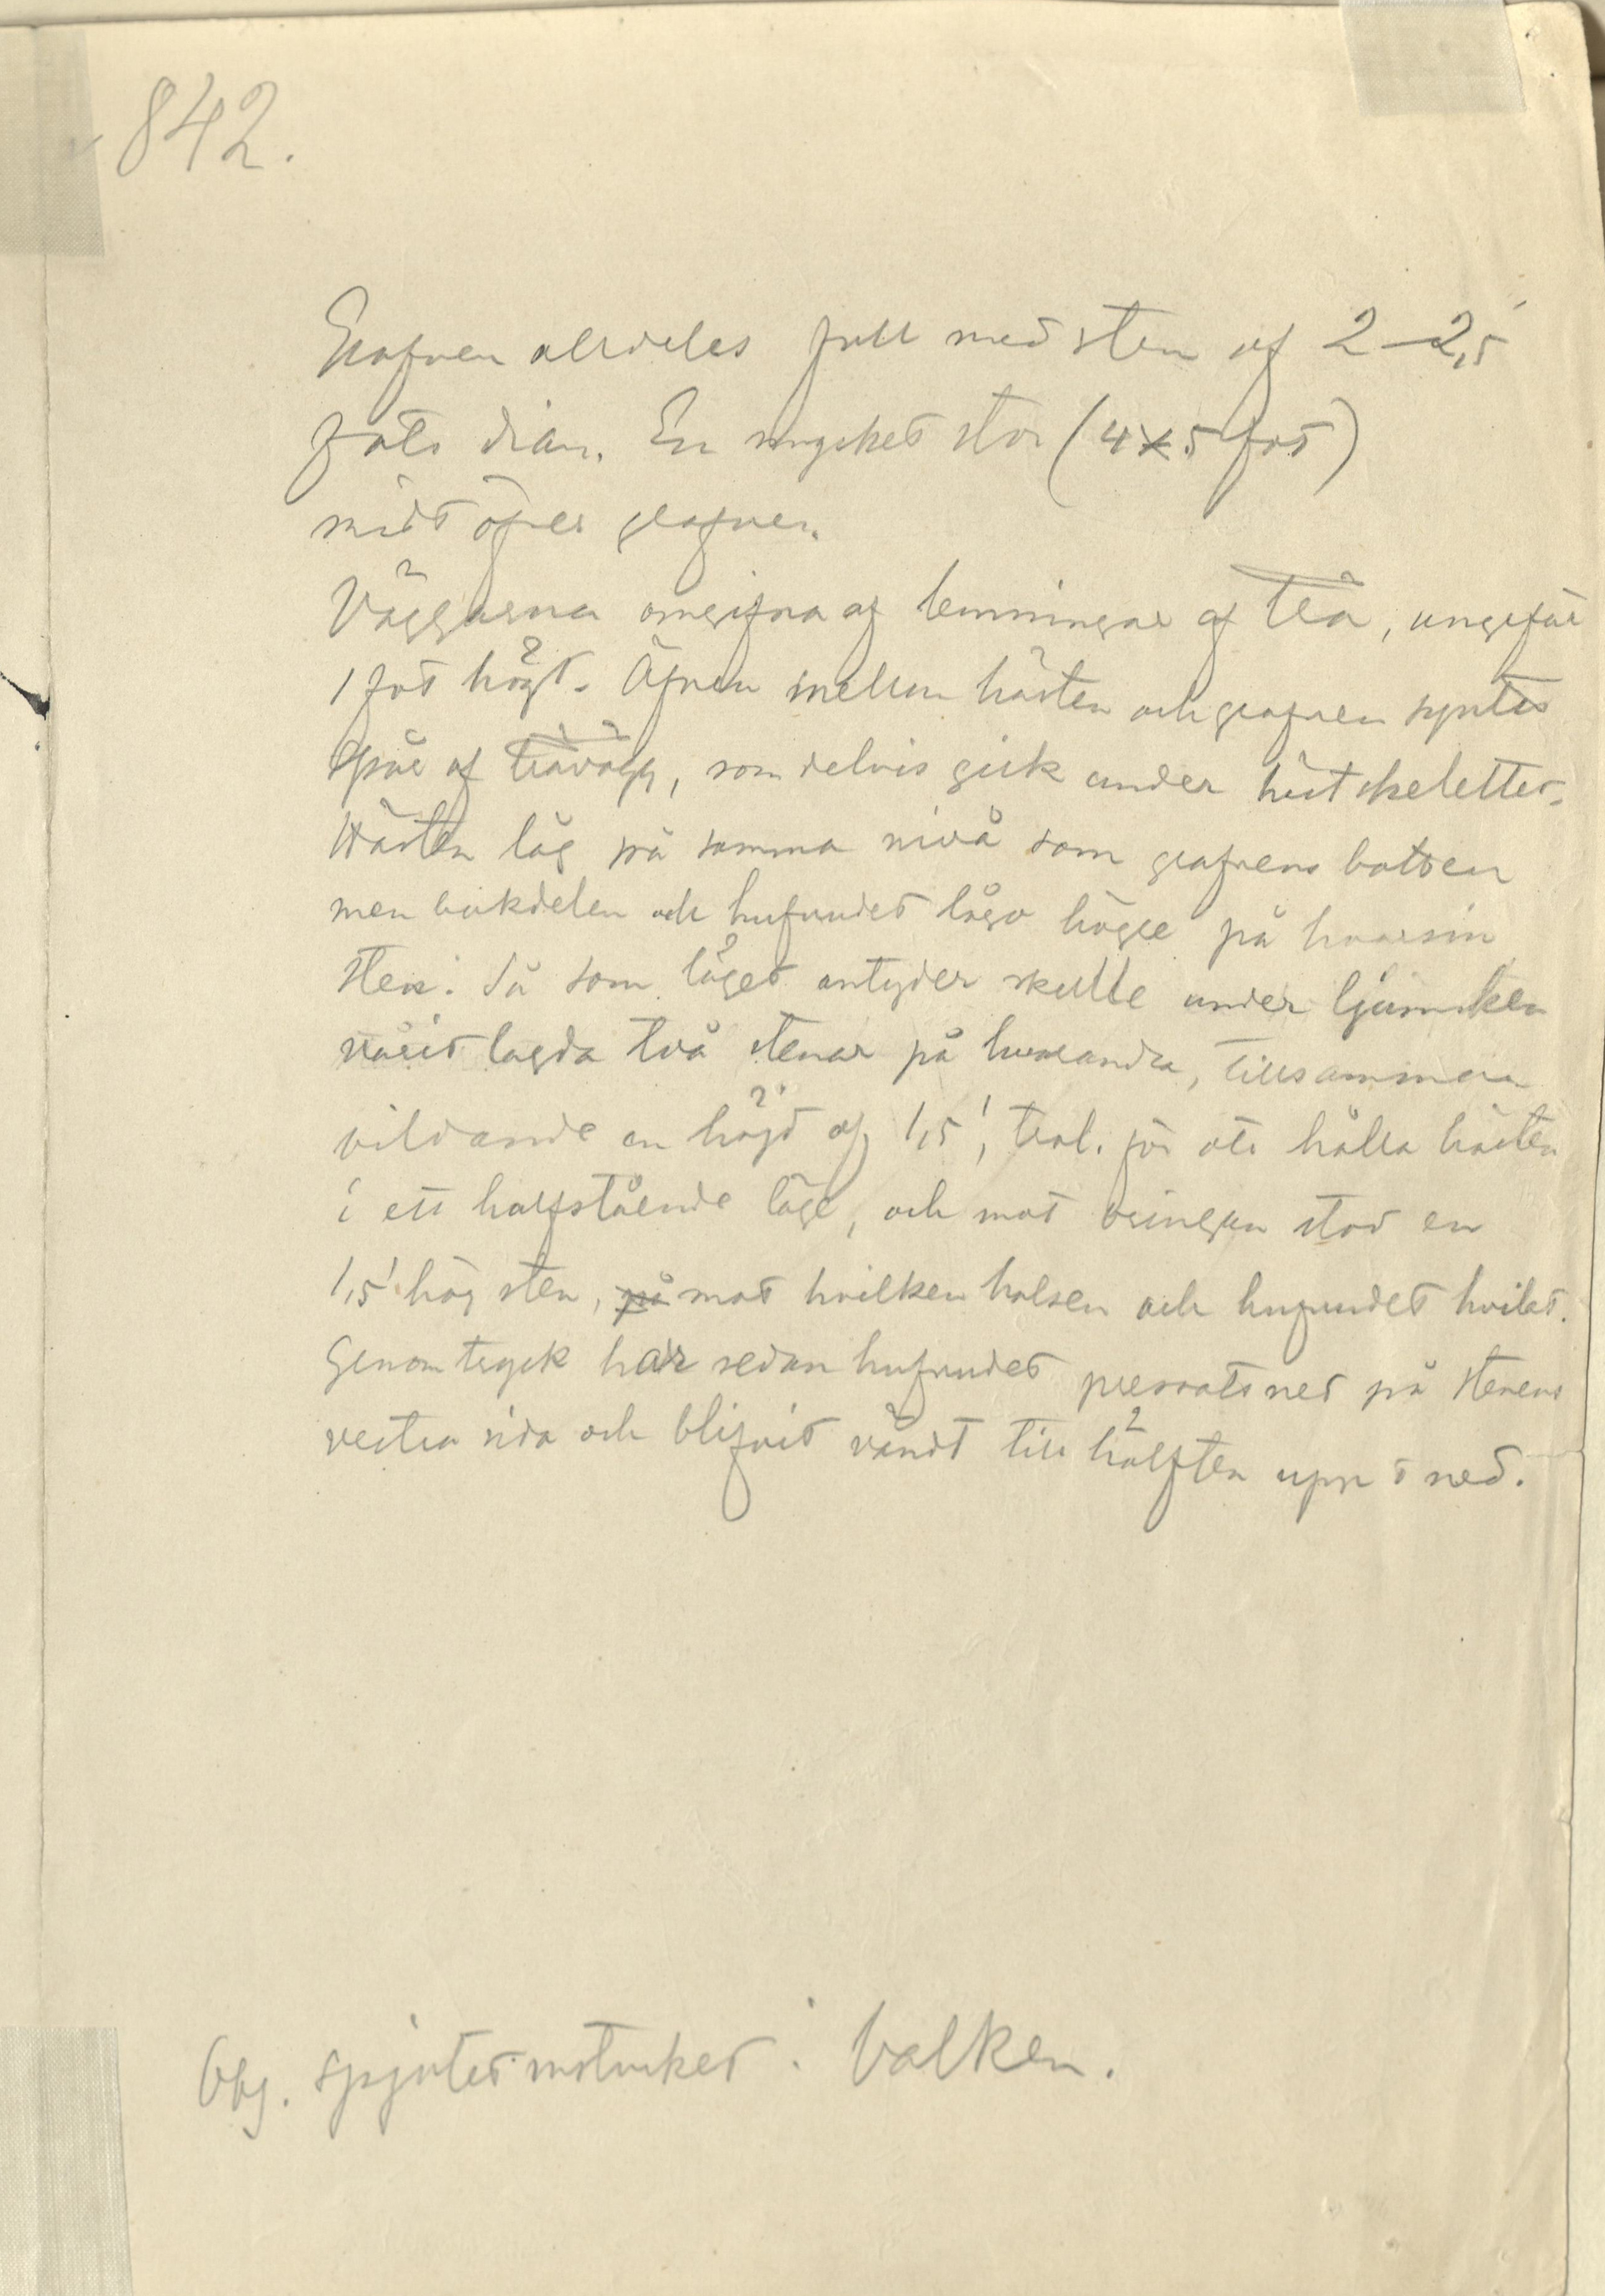 842.
Grafven alldeles full med sten af 2–2,5'
fots diam. En mycket stor (4×5 fot)
midt öfver grafven.
Väggarna omgifna af lemningar af trä, ungefär
1 fot högt. Äfven mellan hästen och grafven syntes
spår af trävägg, som delvis gick under hästskelettet.
Hästen låg på samma nivå som grafvens botten
men bakdelen och hufvudet lågo högre på hvarsin
sten. Så som läget antyder skulle under ljumsken
varit lagda två stenar på hvarandra, tillsammans
bildande en höjd af 1,5', trol. för att hålla hästen
i ett halfstående läge, och mot bringan stod en
1,5' hög sten, på mot hvilken halsen och hufvudet hvilat.
Genom tryck har sedan hufvudet pressats ned på stenens
vestra sida och blifvit vändt till hälften upp o ned.
Obs. spjutet instucket i balken.